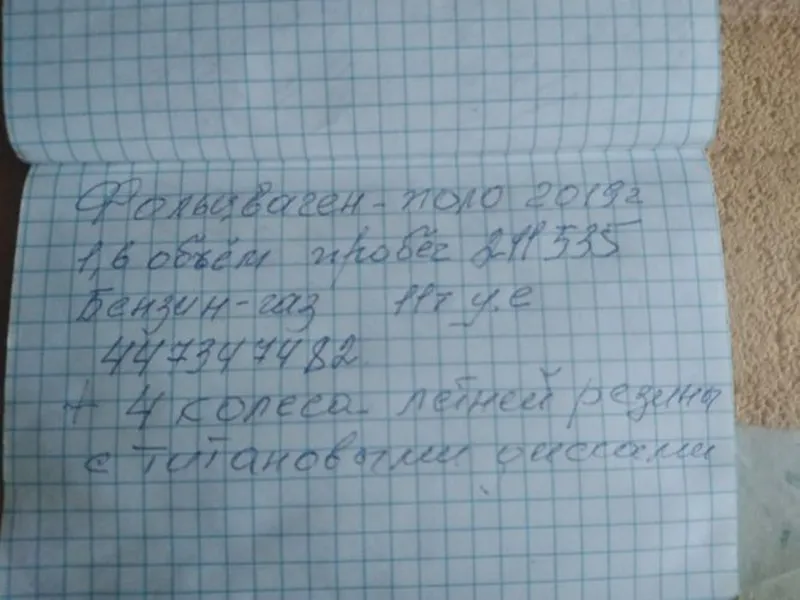 Фольцваген-поло 2019г
1,6 объём пробег 211535
Бензин-газ 11т у.е
447347482
+ 4 колеса летней резины
с титановыми дисками